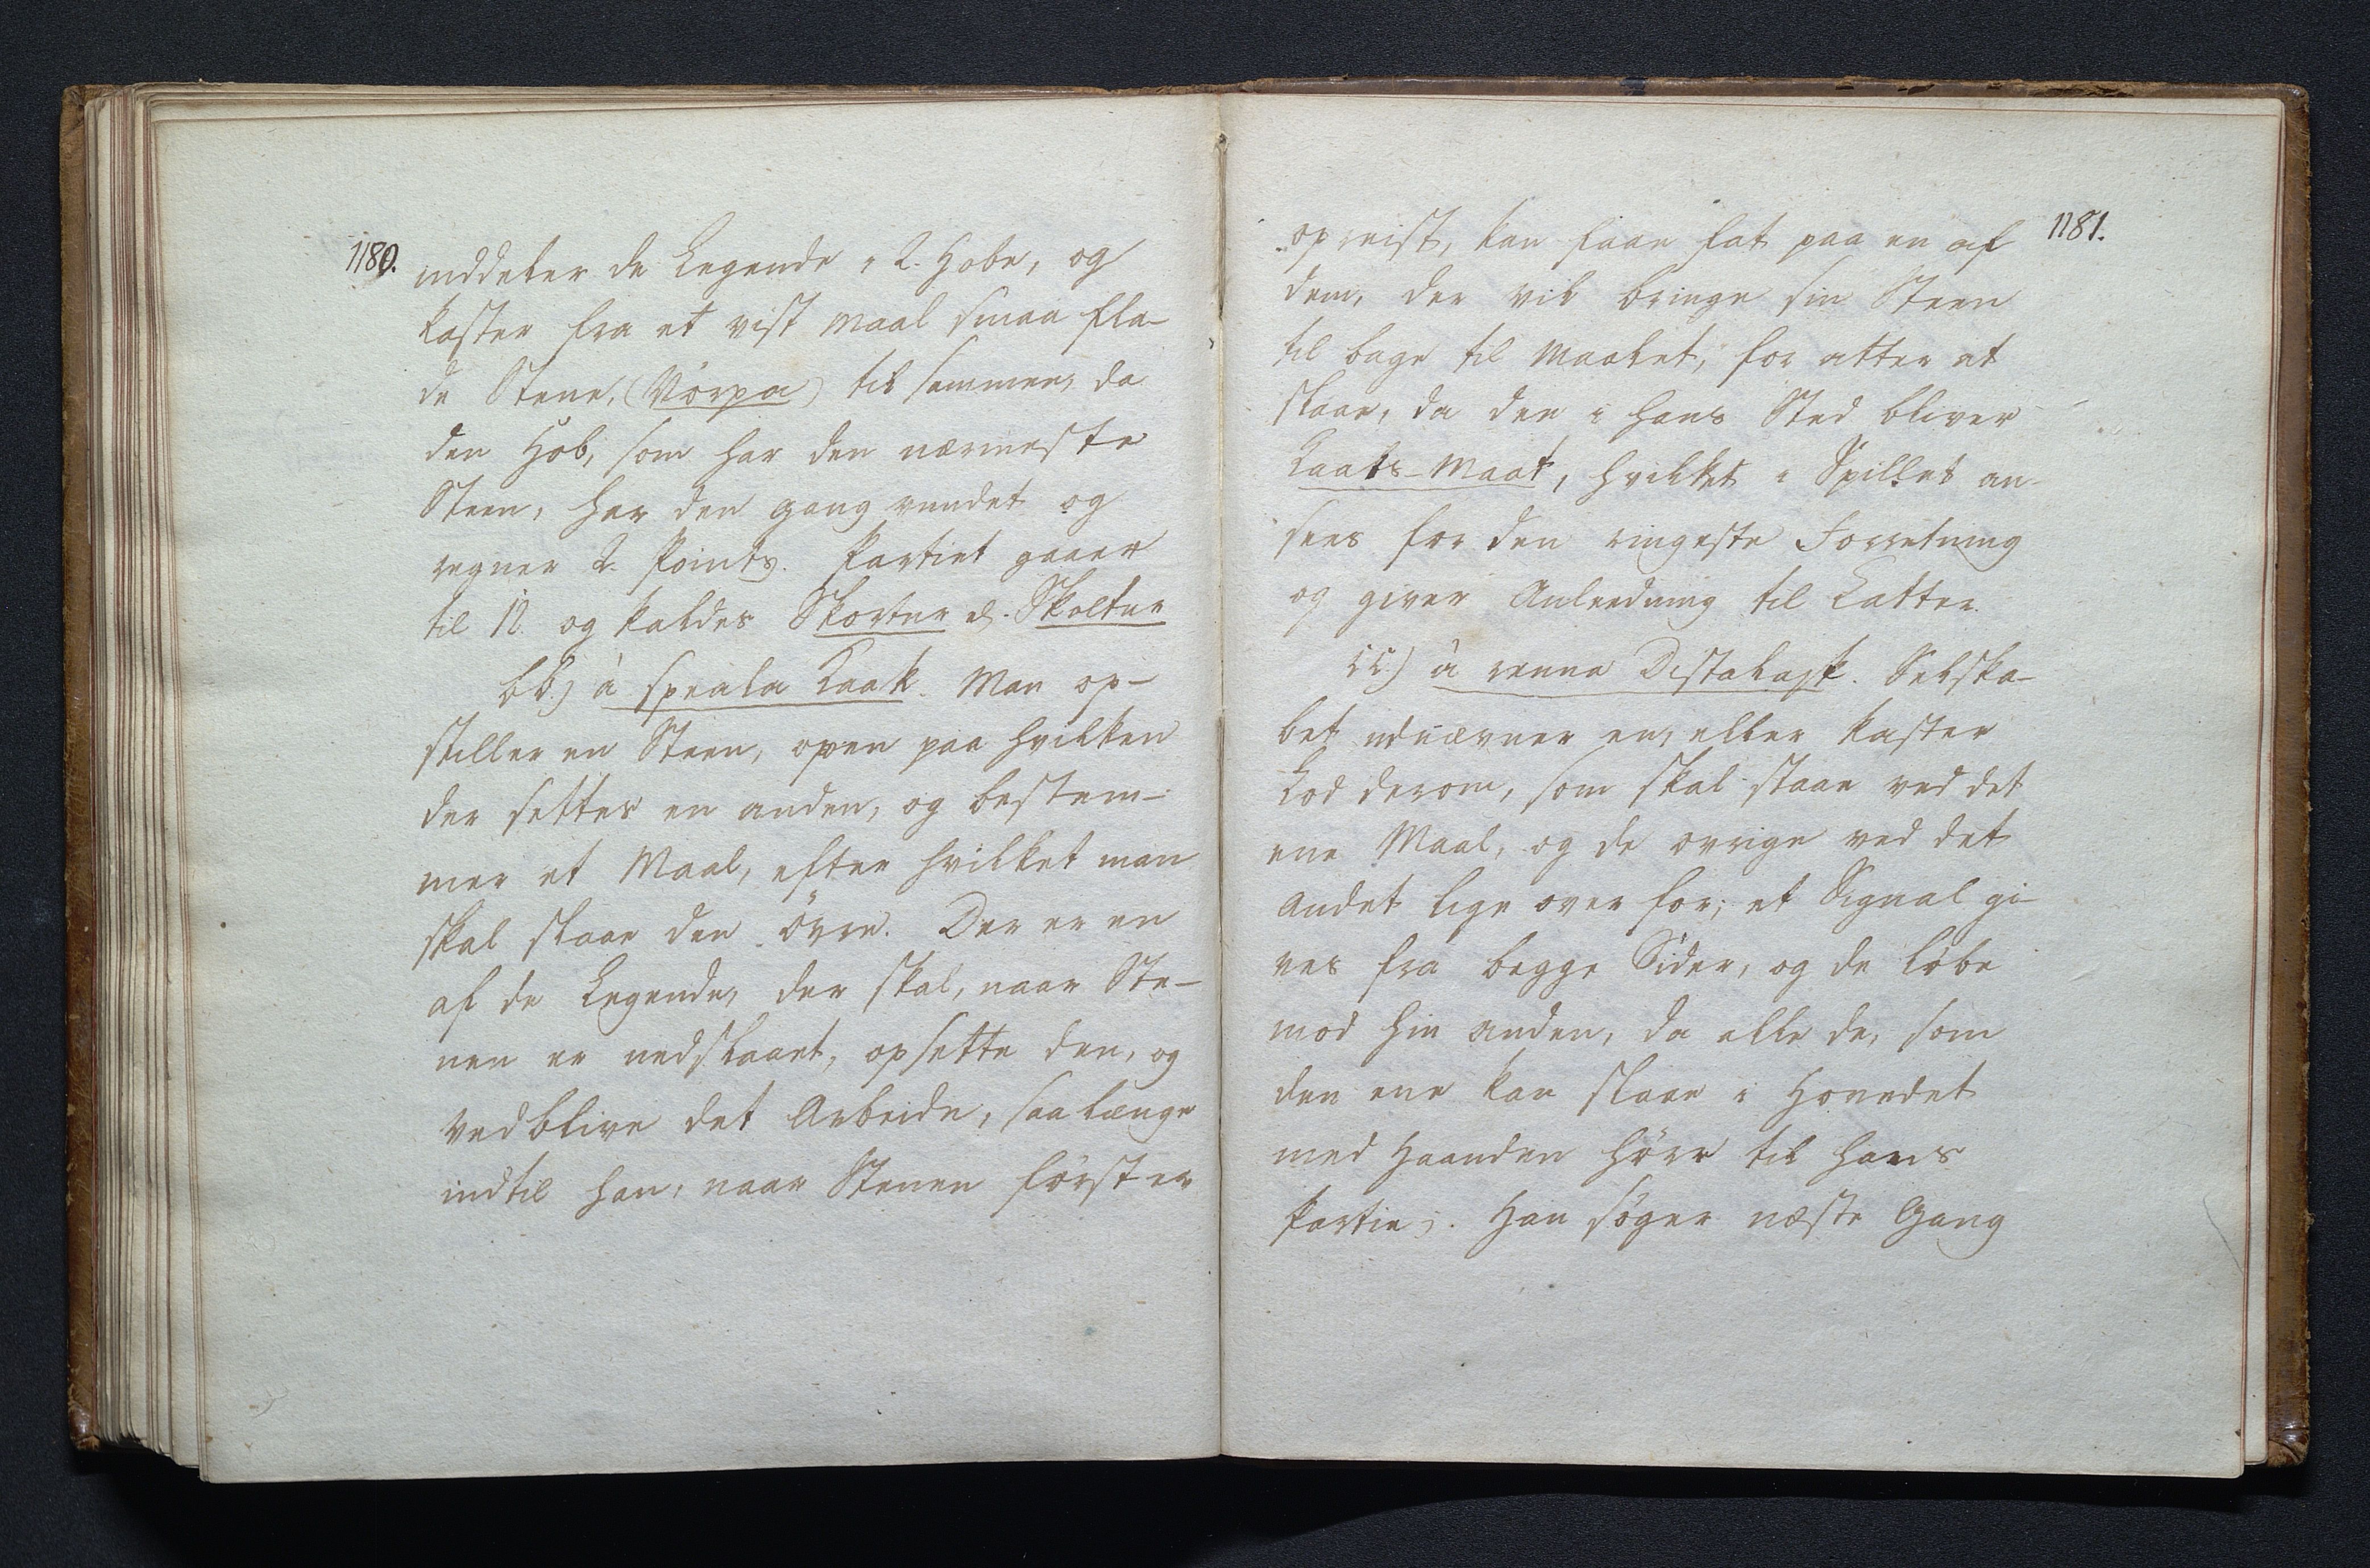 1180.
inddeler de Legende i 2. Hobe, og
kaster fra et vist Maal smaa fla-
de Stene, (Vörpa) til sammen, da
den Hob, som har den nærmeste
Steen, har den gang vundet og
regner 2. Points. Partiet gaaer
til 12. og kaldes Skortur el. Skoltur
bb.) à speala Kaak. Man op-
stiller en Steen, oven paa hvilken
der settes en anden, og bestem-
mer et Maal, efter hvilket man
skal slaae den övre. Der er en
af de Legende, der skal, naar Ste-
nen er nedslaaet, opsette den, og
vedblive det Arbeide, saa længe
indtil han, naar Stenen först er
1181.
opreist, kan faae fat paa en af
dem, der vil bringe sin Steen
til bage til Maalet, for atter at
slaae, da den i hans Sted bliver
Kaaks-Maat, hvilket i Spillet an-
sees for den ringeste Forretning
og giver Anleedning til Latter.
cc.) à renna Distalask. Selska-
bet udnævner en, eller kaster
Lod derom, som skal staae ved det
ene Maal, og de ovrige ved det
andet lige over for; et Signal gi-
ves fra begge Sider, og de löbe
mod hin anden, da alle de, som
den ene kan slaae i Hovedet
med Haanden hörer til hans
Partie;. Han söger næste Gang